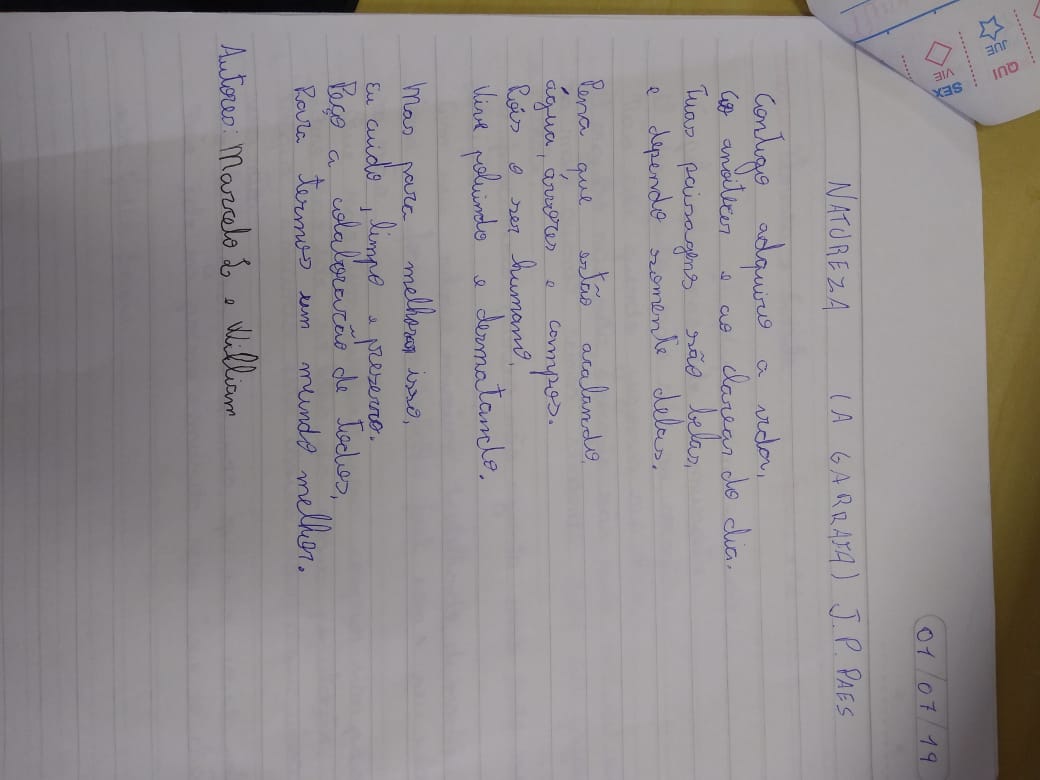 01/07/19
NATUREZA (A GARRAFA) J. P. PAES
Contigo adquiro a vida,
ao anoitecer e ao clarear do dia.
Tuas paisagens são belas,
e dependo somente delas.
Pena que estão acabando
água, árvores e campos.
Pois o ser humano,
Vive poluindo e dermatando.
Mas para melhorar isso,
Eu cuido, limpo e preservo.
Peço a colaboração de todos,
Para termos um mundo melhor.
Autores: Marcelo L e William
QUI
JUE
SEX
VIE